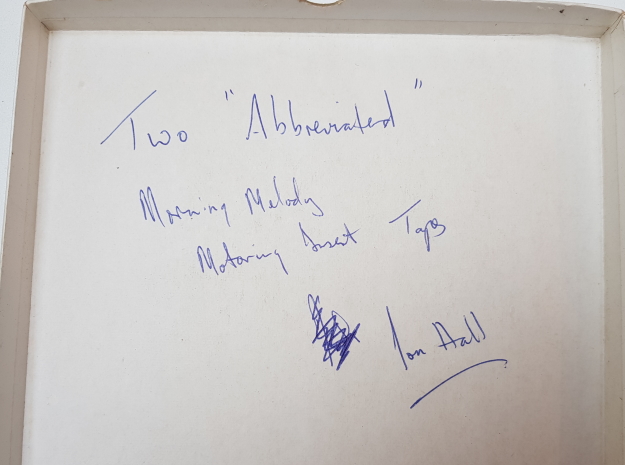 Two "Abbreviated"
Morning Melody
Motoring Insert Tapes
Jon Hall